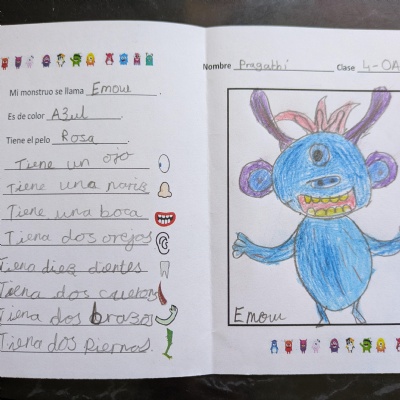 Mi monstruo se llama Emow.
Es de color A3ul.
Tiene el pelo Rosa.
Tiene un ojo
Tiene una naris
Tiene una boca
Tiena dos orejos
Tiena diez dentes
Tiena dos cuernos
Tiena dos brazos
Tiena dos Piernas.
Nombre Pragathi Clase 4-OA
Emow